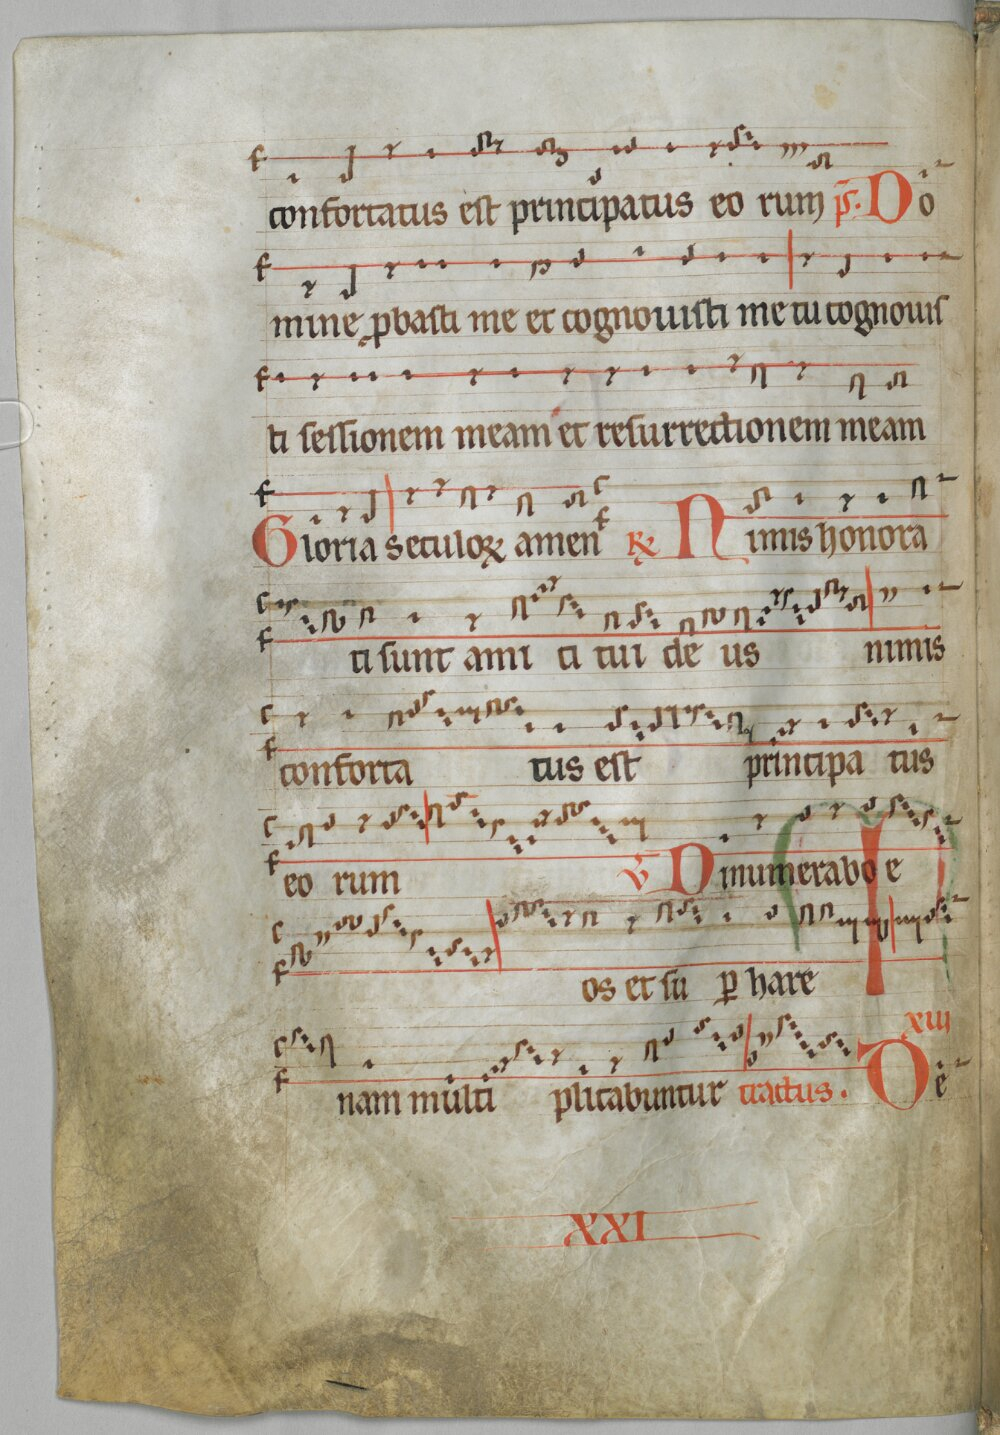 confortatus est principatus eo rum p̄s. Do
mine ꝓbasti me et cognouisti me tu cognouis
ti sessionem meam et resurrectionem meam
Gloria seculoꝝ amen ℟ Nimis honora
ti sunt ami ci tui de us nimis
conforta tus est principa tus
eo rum ℣ Dinumerabo e
os et su ꝑ hare
nam multi plicabuntur tractus. De
xiii
XXI